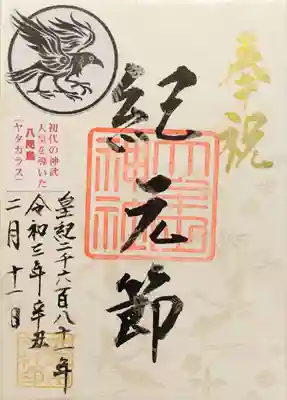 奉祝
紀元節
初代の神武
天皇を導いた
八咫烏
「ヤタガラス」
皇紀二千六百八十一年
令和三年辛丑
二月十一日